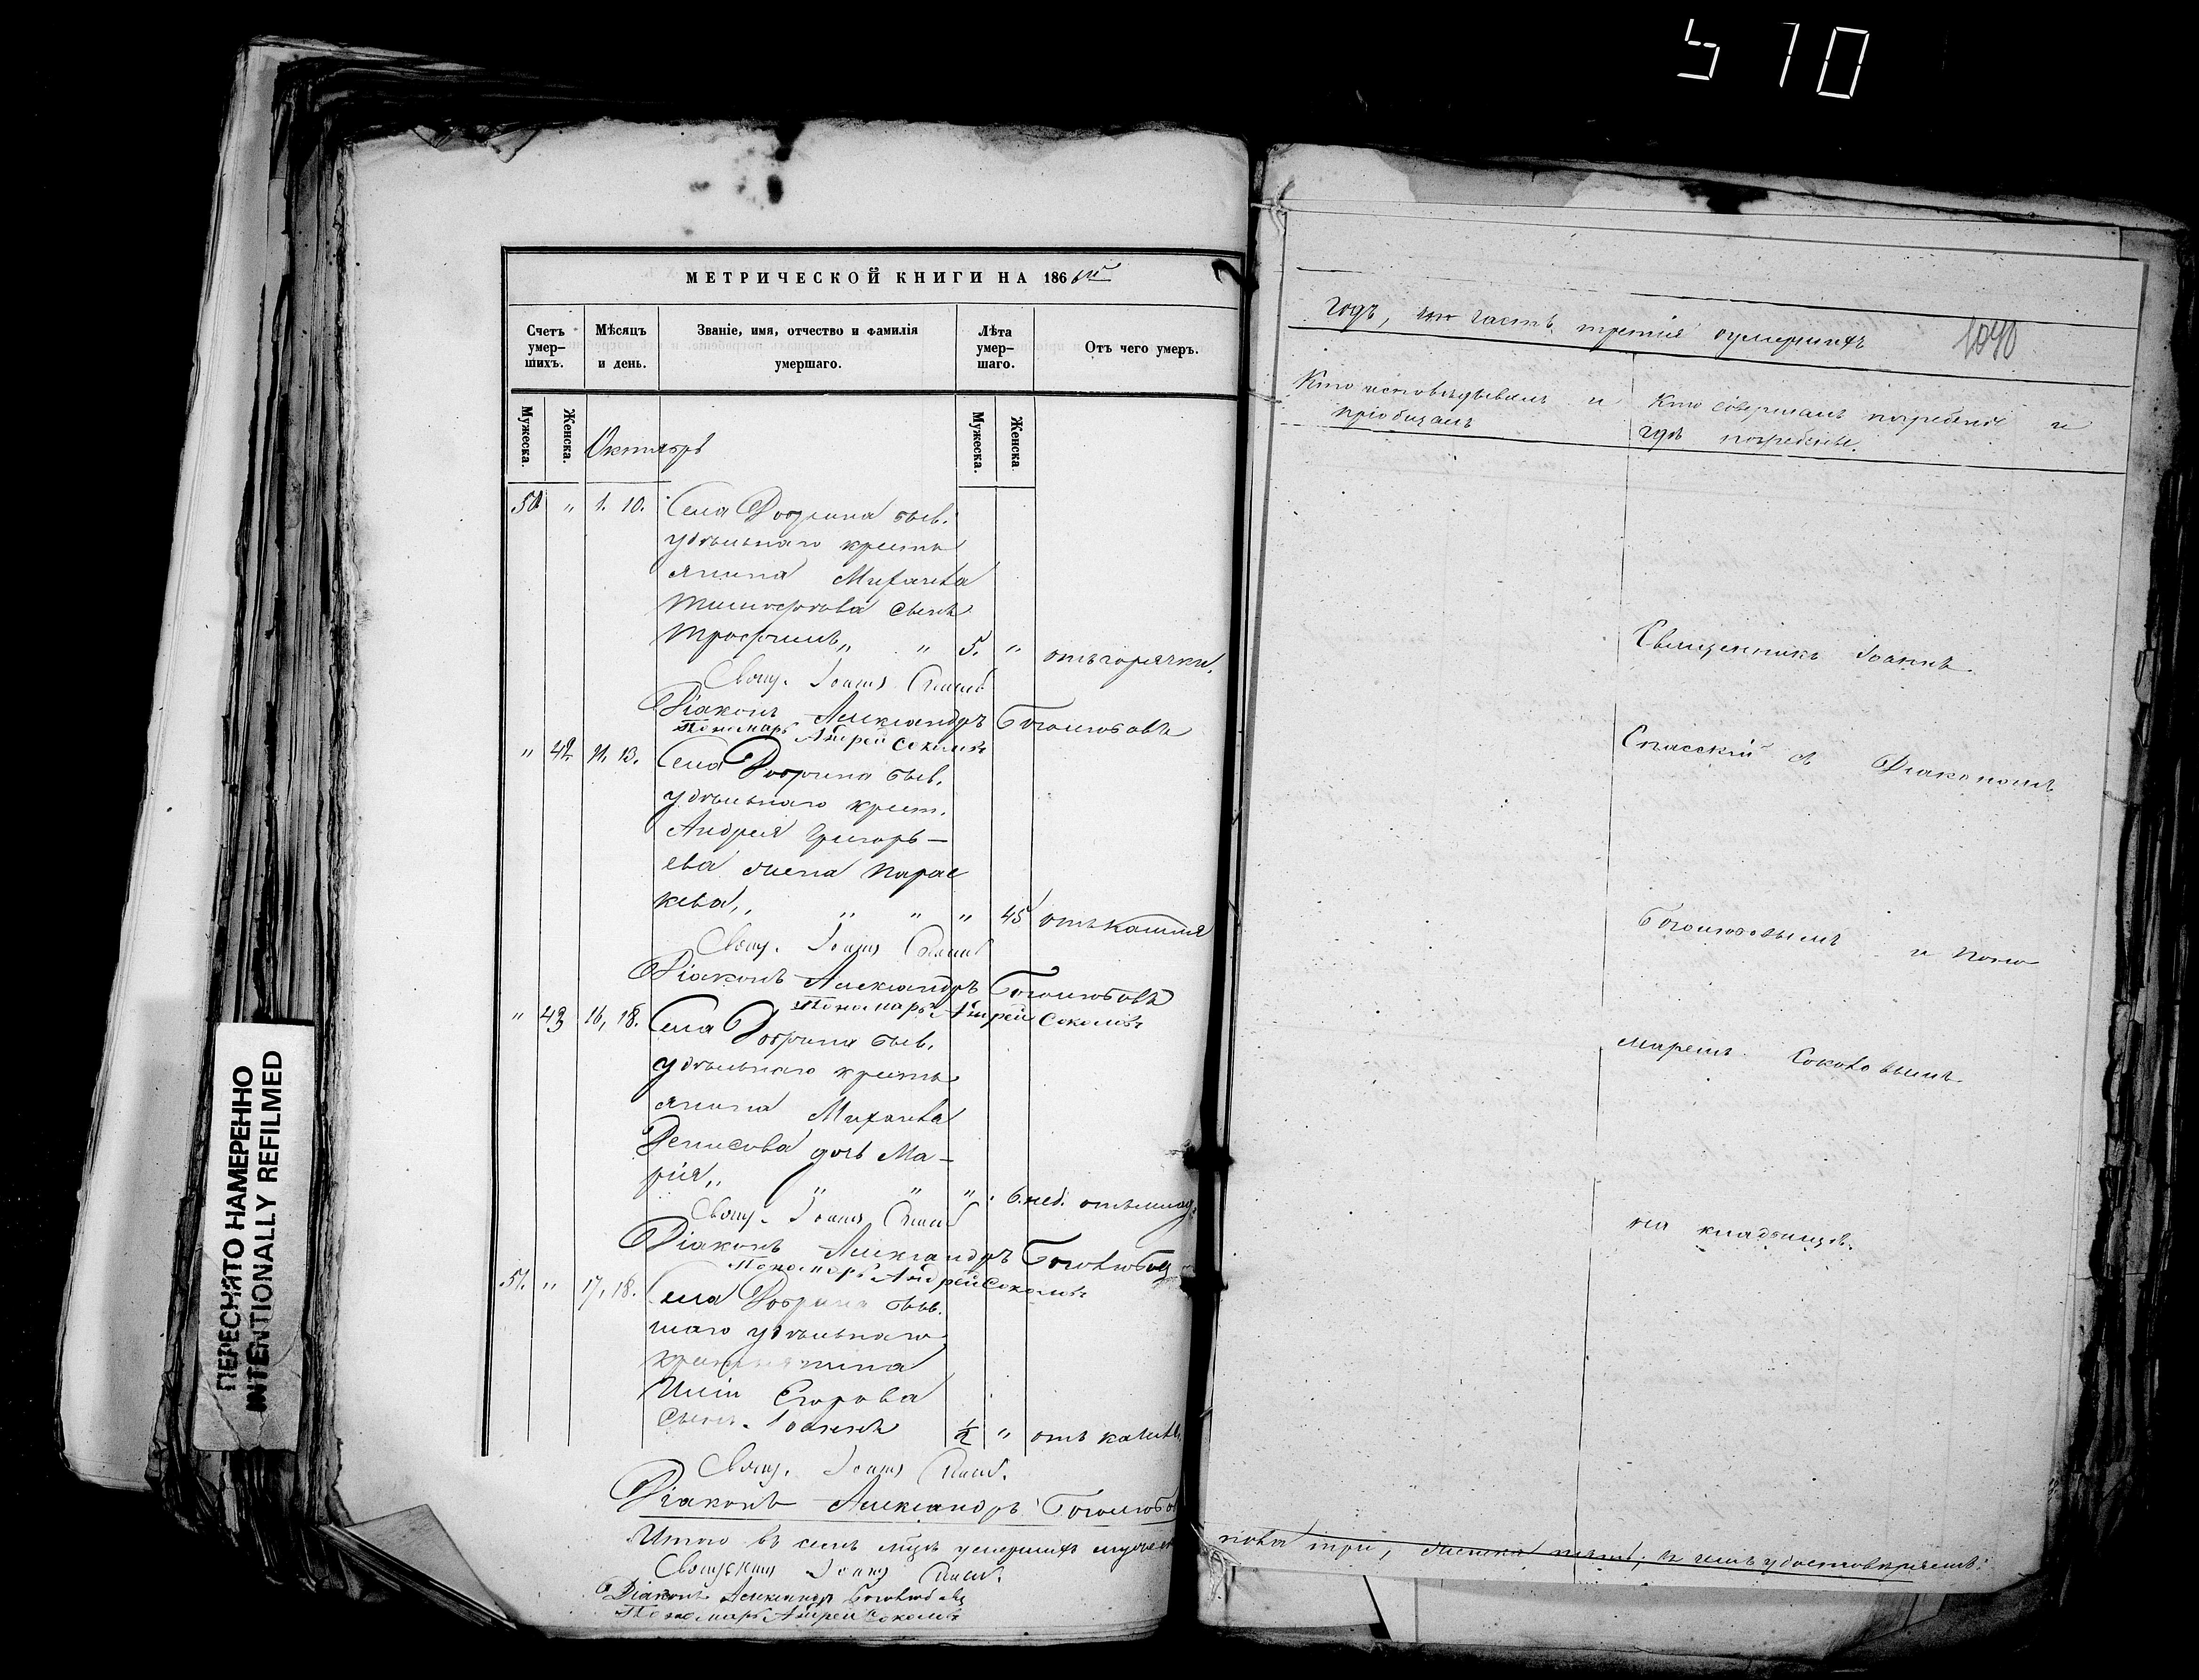 510
МЕТРИЧЕСКОЙ КНИГИ НА 186
Счетъ умер-шихъ.
Мѣсяцъ и день.
Званіе, имя, отчество и фамилія умершаго.
Лѣта умер-шаго.
Отъ чего умеръ.
Мужеска.
Женска.
Мужеска.
Женска
Октябрь
" 1. 10. Села Добрина быв.
удѣльнаго кресть
янина Михаила
Тимофѣева сынъ
Трофимъ " " 5. " отъ горячки.
Свящ. Іоаннъ
Діаконъ Александръ Боголюбовъ
Пономарь Андрей Соколовъ
" 42 11. 13. Села Добрина быв.
удѣльнаго крест.
Андрея Григорь-
ева жена Парас
кева " " " " 45 отъ кашля
Свящ. Іоаннъ
Діаконъ Александръ Боголюбовъ
Пономарь Андрей Соколовъ
" 43 16, 18. Села Добрина быв.
удѣльнаго кресть
янина Михаила
Денисова дочь Ма-
рія " " " " 6. нед.
Свящ. Іоаннъ
Діаконъ Александръ
Пономарь Андрей Соколовъ
51. " 17, 18. Села Добрина быв
шаго удѣльнаго
крестьянина
Иліи Егорова
сынъ Іоаннъ 1/2 " отъ
Свящ. Іоаннъ
Діаконъ Александръ
Итого въ семъ м-цѣ умершихъ
Іоаннъ
Діаконъ Александръ
Пономарь Андрей Соколовъ
годъ, часть третія о умершихъ
1090
Кто исповѣдывалъ и пріобщалъ
Кто совершалъ погребеніе и гдѣ погребены.
Священникъ Іоаннъ
Спасскій съ Діакономъ
Боголюбовымъ и Поно
маремъ Соколовымъ
на кладбищѣ.
три, женска въ чемъ удостовѣряемъ:
ПЕРЕСНЯТО НАМЕРЕННО
INTENTIONALLY REFILMED